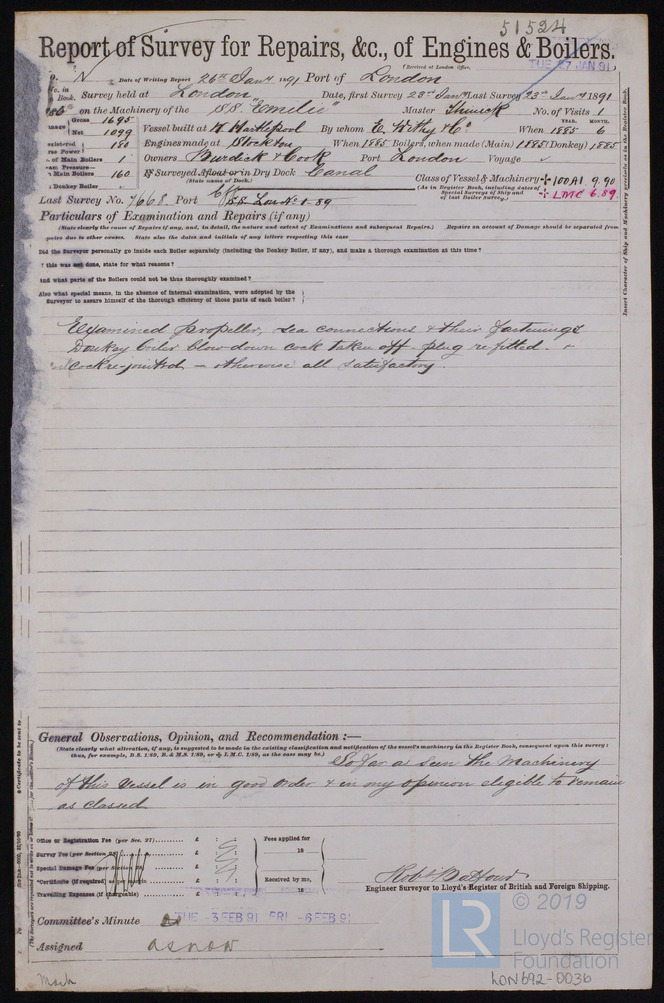 51524
Report of Survey for Repairs, &c., of Engines & Boilers.
(Received at London Office, TUE. 27 JAN 91
Date of Writing Report 26th Jany 1891 Port of London
Survey held at London Date, first Survey 23rd Jany Last Survey 23rd Jany 1891
on the Machinery of the S.S. "Emilie" Master No. of Visits 1
Gross 1695
Net 1099 Vessel built at W. Hartlepool By whom E. Withy & Co. When 1885 YEAR. 6 MONTH.
180 Engines made at Stockton When 1885 Boilers, when made (Main) 1885 (Donkey) 1885
of Main Boilers 1 Owners Burdick & Cook Port London Voyage
Main Boilers 160 If Surveyed Afloat or in Dry Dock Canal
(State name of Dock.)
Class of Vessel & Machinery ✠ 100A1 9.90
(As in Register Book, including dates of Special Surveys of Ship and of last Boiler Survey.) ✠ LMC 6.89
Donkey Boiler
Last Survey No. 7668 Port
Particulars of Examination and Repairs (if any)
(State clearly the cause of Repairs if any, and, in detail, the nature and extent of Examinations and subsequent Repairs.) Repairs on account of Damage should be separated from
pairs due to other causes. State also the dates and initials of any letters respecting this case
Did the Surveyor personally go inside each Boiler separately (including the Donkey Boiler, if any), and make a thorough examination at this time?
this was not done, state for what reasons?
and what parts of the Boilers could not be thus thoroughly examined?
Also what special means, in the absence of internal examination, were adopted by the
Surveyor to assure himself of the thorough efficiency of those parts of each boiler?
Insert Character of Ship and Machinery precisely as in the Register Book.
Examined propeller, sea connections & their fastenings
Donkey boiler blow down cock taken off plug refitted &
cock re-jointed – otherwise all satisfactory.
General Observations, Opinion, and Recommendation :—
(State clearly what alteration, if any, is suggested to be made in the existing classification and notification of the vessel's machinery in the Register Book, consequent upon this survey;
thus, for example, B.S. 1/89, B. & M.S. 1/89, or ✠ L.M.C. 1/89, as the case may be.)
So far as seen the Machinery
of this Vessel is in good order & in my opinion eligible to remain
as classed
Office or Registration Fee (per Sec. 27) £ : : Fees applied for
Survey Fee (per Section 28) £ : : 18
Special Damage Fee (per Section 28) £ : :
*Certificate (if required) £ : : Received by me,
Travelling Expenses (if chargeable) £ : : 18
Robt Balfour
Engineer Surveyor to Lloyd's Register of British and Foreign Shipping.
Committee's Minute TUE -3 FEB 91 FRI -6 FEB 91
Assigned as now
© 2019
LR
Lloyd's Register
Foundation
LON692-0036